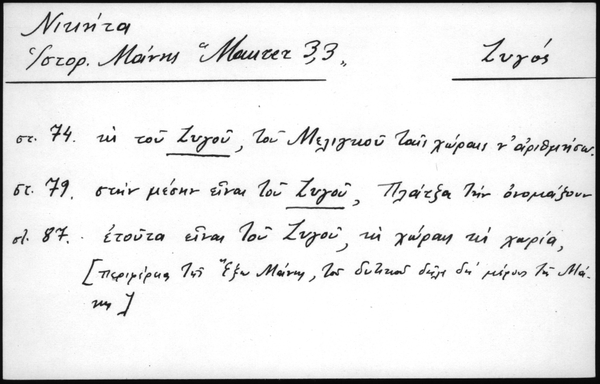 Νικήτα
Ἱστορ. Μάνης "Mauter 3,3„ Ζυγός
στ. 74. κὶ τοῦ Ζυγοῦ, τοῦ Μελιγκοῦ ταὶς χώραις ν' ἀριθμήσω.
στ. 79. στὴν μέσην εἶναι τοῦ Ζυγοῦ, Πλάτζα τὴν ὀνομάζουν
στ. 87. ἐτοῦτα εἶναι τοῦ Ζυγοῦ, κὶ χώραις κὶ χωρία,
[περιφέρεια τῆς Ἔξω Μάνης, τοῦ δυτικοῦ δηλαδὴ μέρους τῆς Μά-
νης]